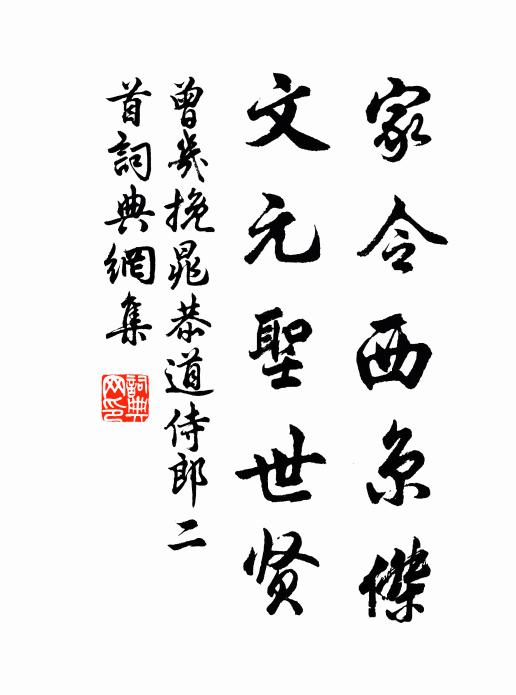 家令西京傑
文元聖世贤
曾幾挽晁恭道侍郎二
首詞典網集
詞典
网印